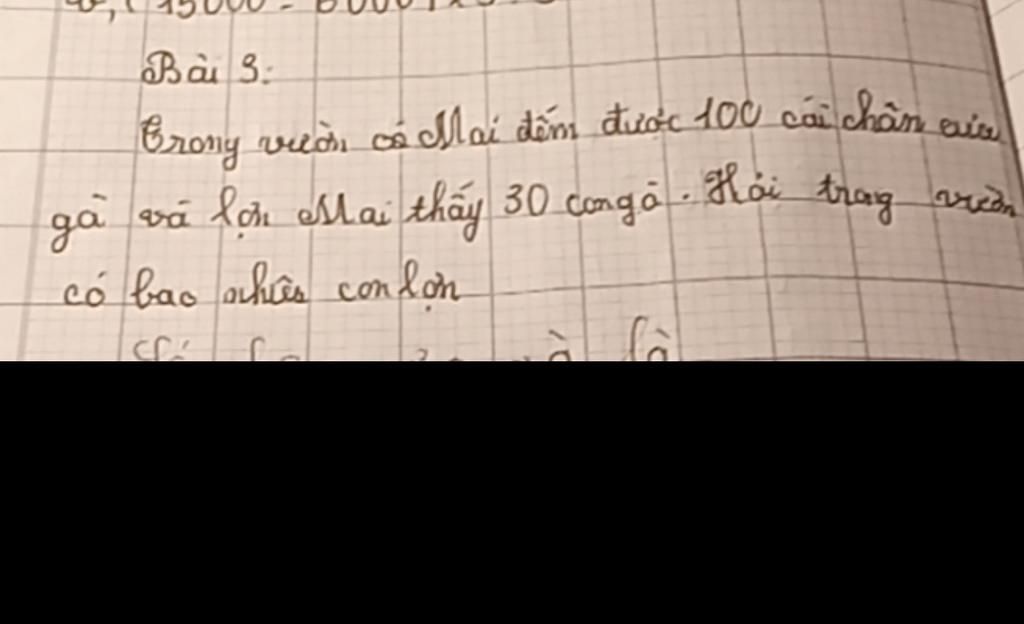 15000 - 6000) x
Bài 3:
Trong vườn có Mai đếm được 100 cái chân của
gà và lợn Mai thấy 30 con gà. Hỏi trong vườn
có bao nhiêu con lợn